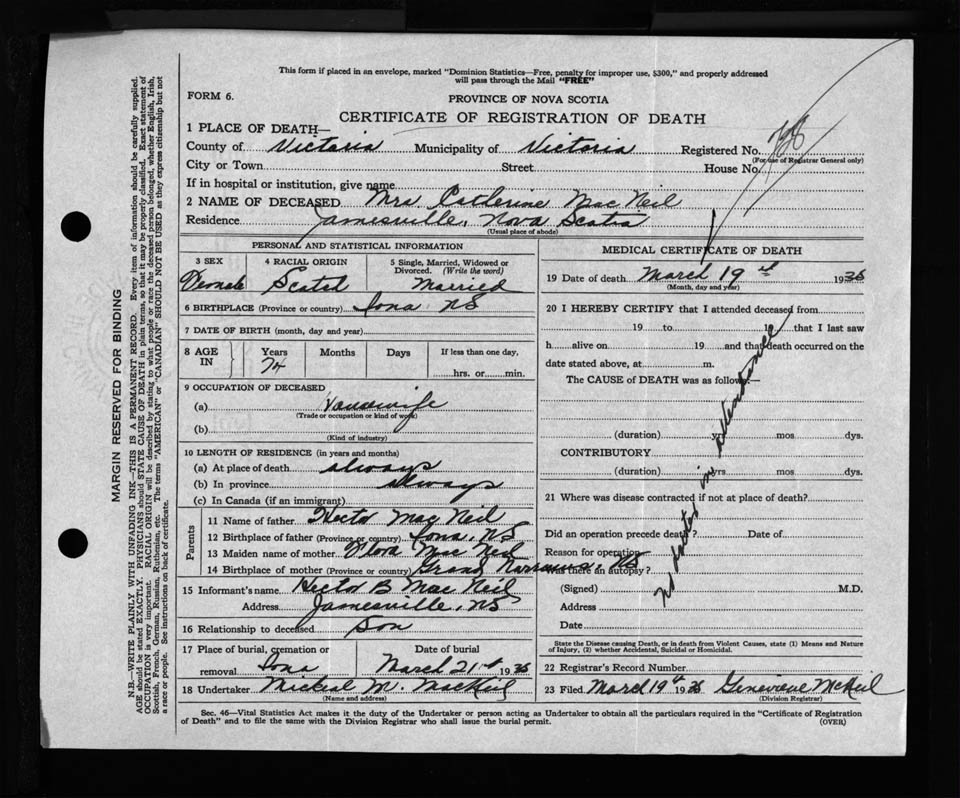 This form if placed in an envelope, marked "Dominion Statistics—Free, penalty for improper use, $300," and properly addressed
will pass through the Mail "FREE"
FORM 6.
PROVINCE OF NOVA SCOTIA
CERTIFICATE OF REGISTRATION OF DEATH
1 PLACE OF DEATH—
County of Victoria Municipality of Victoria Registered No.
(For use of Registrar General only)
City or Town Street House No.
If in hospital or institution, give name
2 NAME OF DECEASED Mrs Catherine Mac Neil
Residence Jamesville, Nova Scotia
(Usual place of abode)
PERSONAL AND STATISTICAL INFORMATION
3 SEX 4 RACIAL ORIGIN 5 Single, Married, Widowed or
Divorced. (Write the word)
Female Scotch Married
6 BIRTHPLACE (Province or country) Iona NS
7 DATE OF BIRTH (month, day and year)
8 AGE IN Years Months Days If less than one day,
74 hrs. or min.
9 OCCUPATION OF DECEASED
(a) Housewife
(Trade or occupation or kind of work)
(b)
(Kind of industry)
10 LENGTH OF RESIDENCE (in years and months)
(a) At place of death always
(b) In province always
(c) In Canada (if an immigrant)
Parents
11 Name of father Hector Mac Neil
12 Birthplace of father (Province or country) Iona, NS
13 Maiden name of mother Flora Mac Neil
14 Birthplace of mother (Province or country) Grand Narrows, NS
15 Informant's name Hector B Mac Neil
Address Jamesville, NS
16 Relationship to deceased Son
17 Place of burial, cremation or Date of burial
removal Iona March 21st 1936
18 Undertaker Michael M. MacNeil
(Name and address)
MEDICAL CERTIFICATE OF DEATH
19 Date of death March 19th 1936
(Month, day and year)
20 I HEREBY CERTIFY that I attended deceased from
19 to 19 that I last saw
h alive on 19 and that death occurred on the
date stated above, at m.
The CAUSE OF DEATH was as follows:—
(duration) yrs mos dys.
CONTRIBUTORY
(duration) yrs mos. dys.
No doctor in attendance
21 Where was disease contracted if not at place of death?
Did an operation precede death? Date of
Reason for operation
Was there an autopsy?
(Signed) M.D.
Address
Date
State the Disease causing Death, or in death from Violent Causes, state (1) Means and Nature
of Injury, (2) whether Accidental, Suicidal or Homicidal.
22 Registrar's Record Number
23 Filed March 19th 1936 Genevieve McNeil
(Division Registrar)
Sec. 46—Vital Statistics Act makes it the duty of the Undertaker or person acting as Undertaker to obtain all the particulars required in the "Certificate of Registration
of Death" and to file the same with the Division Registrar who shall issue the burial permit.
(OVER)
MARGIN RESERVED FOR BINDING
N.B.—WRITE PLAINLY WITH UNFADING INK—THIS IS A PERMANENT RECORD. Every item of information should be carefully supplied.
AGE should be stated EXACTLY. PHYSICIANS should STATE CAUSE OF DEATH in plain terms, so that it may be properly classified. Exact statement of
OCCUPATION is very important. RACIAL ORIGIN will be described by stating to what people or race the deceased person belonged, whether English, Irish,
Scottish, French, German, Russian, Ruthenian, etc. The terms "AMERICAN" or "CANADIAN" SHOULD NOT BE USED as they express citizenship but not
a race or people. See instructions on back of certificate.